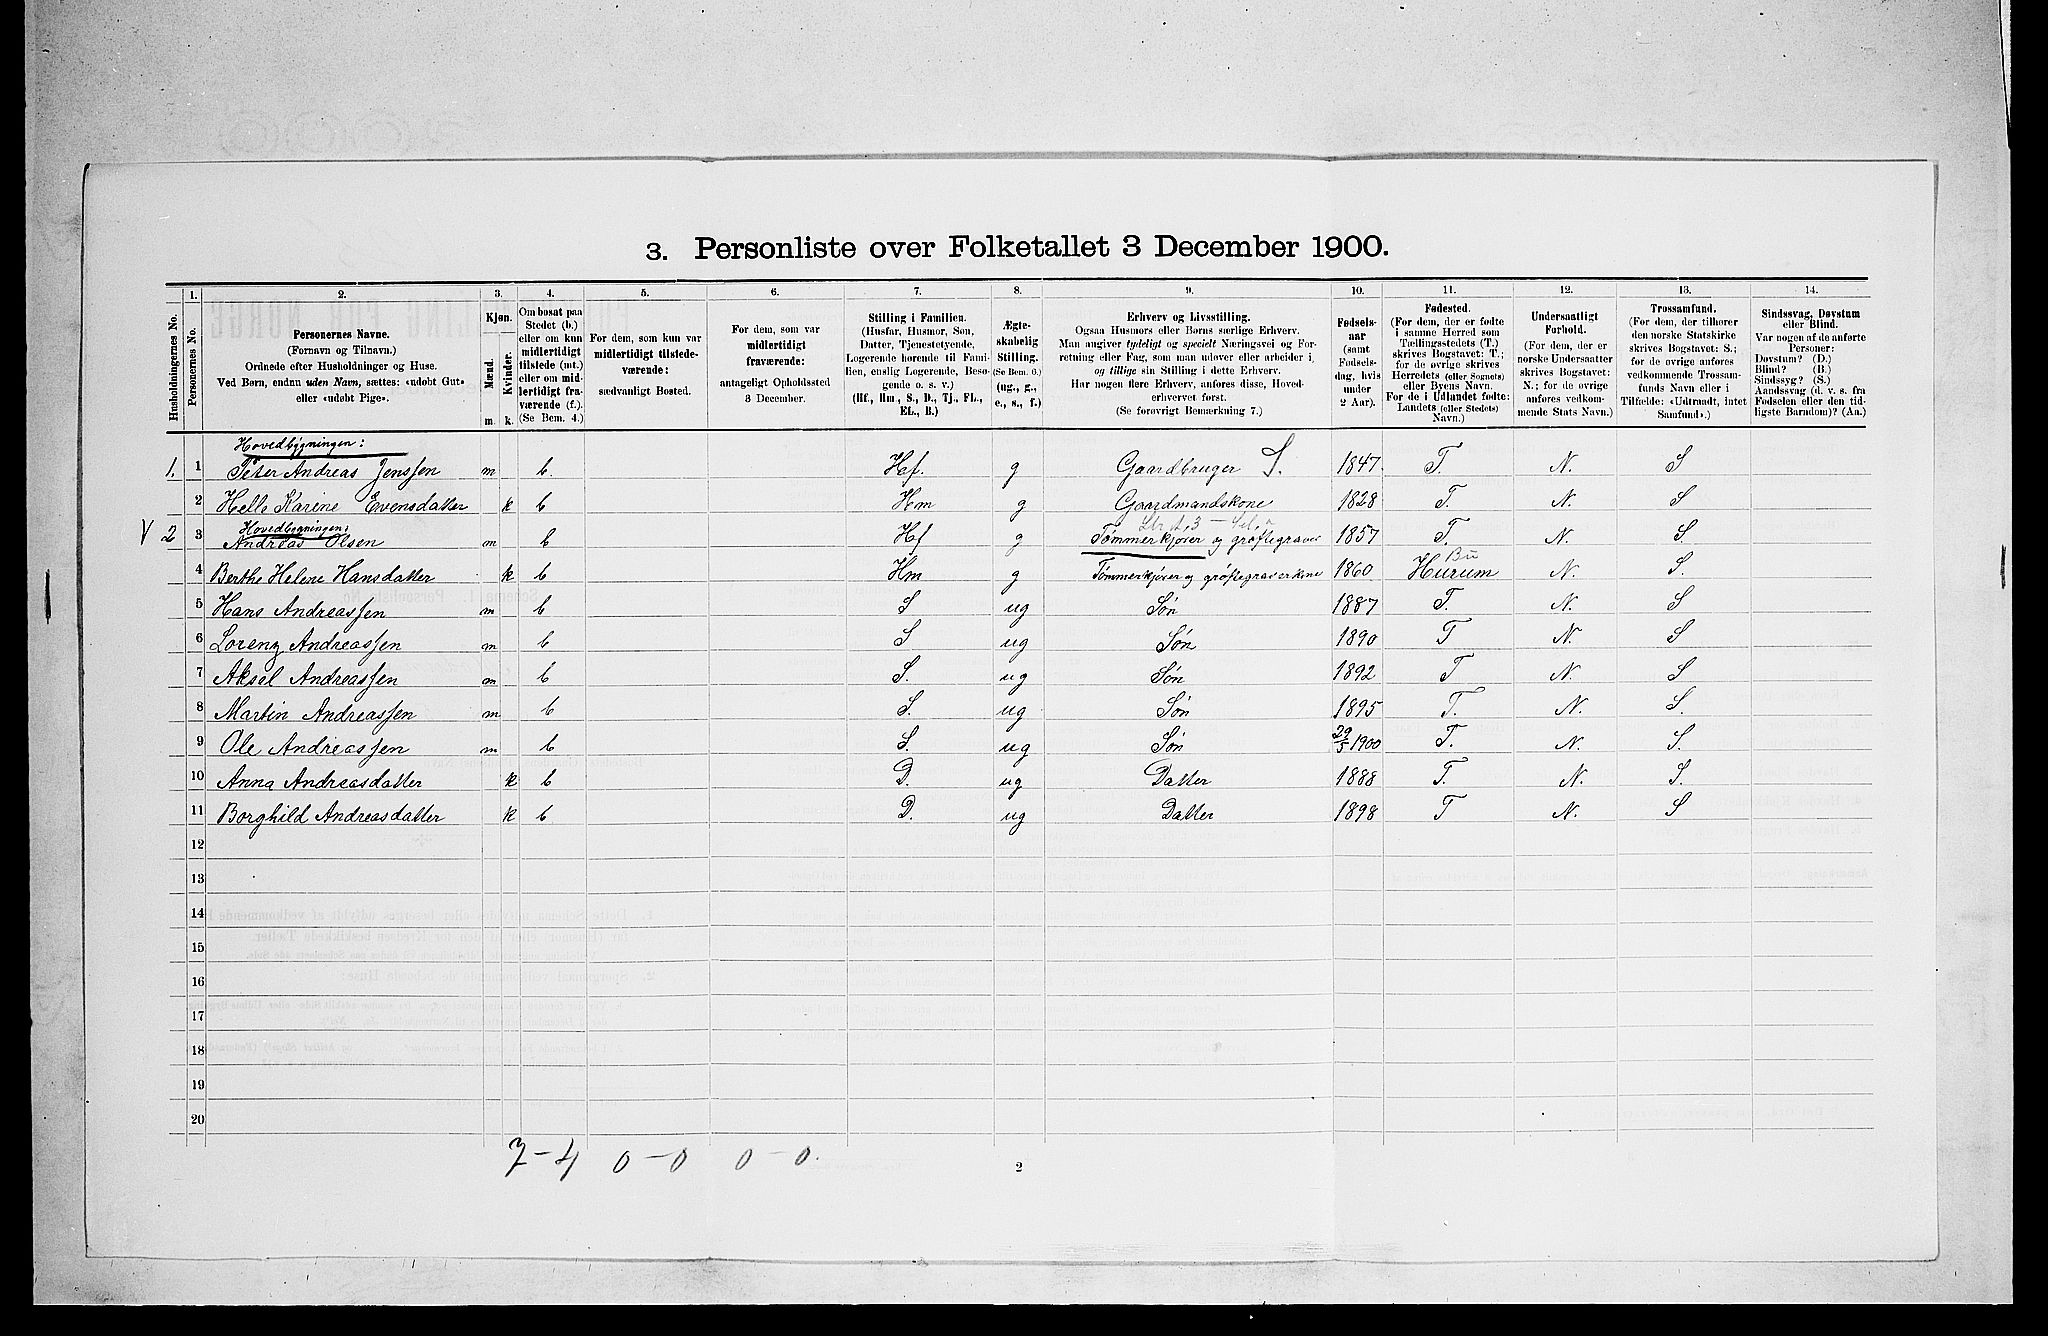 3. Personliste over Folketallet 3 December 1900.
Husholdningernes No.
1.
Personernes No.
2.
Personernes Navne.
(Fornavn og Tilnavn.)
Ordnede efter Husholdninger og Huse.
Ved Børn, endnu uden Navn, sættes: «udøbt Gut»
eller «udøbt Pige».
3.
Kjøn.
Mænd.
Kvinder.
m. k.
4.
Om bosat paa
Stedet (b.)
eller om kun
midlertidigt
tilstede (mt.)
eller om mid-
lertidigt fra-
værende (f.).
(Se Bem. 4.)
5.
For dem, som kun var
midlertidigt tilstede-
værende:
sædvanligt Bosted.
6.
For dem, som var
midlertidigt
fraværende:
antageligt Opholdssted
3 December.
7.
Stilling i Familien.
(Husfar, Husmor, Søn,
Datter, Tjenestetyende,
Logerende hørende til Fami-
lien, enslig Logerende, Besø-
gende o. s. v.)
(Hf., Hm., S., D., Tj., FL.,
EL., B.)
8.
Ægte-
skabelig
Stilling.
(Se Bem. 6.)
(ug., g.,
e., s., f.)
9.
Erhverv og Livsstilling.
Ogsaa Husmors eller Børns særlige Erhverv.
Man angiver tydeligt og specielt Næringsvei og For-
retning eller Fag, som man udøver eller arbeider i,
og tillige sin Stilling i dette Erhverv.
Har nogen flere Erhverv, anføres disse, Hoved-
erhvervet først.
(Se forøvrigt Bemærkning 7.)
10.
Fødsels-
aar
(samt
Fødsels-
dag, hvis
under
2 Aar).
11.
Fødested.
(For dem, der er fødte
i samme Herred som
Tællingsstedets (T.)
skrives Bogstavet: T.;
for de øvrige skrives
Herredets (eller Sognets)
eller Byens Navn.
For de i Udlandet fødte:
Landets (eller Stedets)
Navn.)
12.
Undersaatligt
Forhold.
(For dem, der er
norske Undersaatter
skrives Bogstavet:
N.; for de øvrige
anføres vedkom-
mende Stats Navn.)
13.
Trossamfund.
(For dem, der tilhører
den norske Statskirke
skrives Bogstavet: S.;
for de øvrige anføres
vedkommende Trossam-
funds Navn eller i
Tilfælde: «Udtraadt, intet
Samfund».)
14.
Sindssvag, Døvstum
eller Blind.
Var nogen af de anførte
Personer:
Døvstum? (D.)
Blind? (B.)
Sindssyg? (S.)
Aandssvag (d. v. s. fra
Fødselen eller den tid-
ligste Barndom)? (Aa.)
Hovedbygningen:
1. 1 Peter Andreas Jenssen m b. Hf. g Gaardbruger S. 1847. T. N. S
2 Helle Karine Evensdatter k b Hm g Gaardmandskone 1828 T. N. S
Hovedbygningen:
V 2 3 Andreas Olsen m b Hf g Tømmerkjører og grøftegraver 1857 T. N. S.
Bu
4 Berthe Helene Hansdatter k b Hm g Tømmerkjører og grøftegraverkone 1860 Hurum N. S.
5 Hans Andreassen m b S ug Søn 1887 T. N. S
6 Lorenz Andreassen m b S ug Søn 1890 T N. S
7 Aksel Andreassen m b S. ug Søn 1892 T N. S
8 Martin Andreassen m b S. ug Søn 1895 T. N. S.
9 Ole Andreassen m b S. ug Søn 29/5 1900 T. N. S.
10 Anna Andreasdatter k b D. ug Datter 1888 T. N. S.
11 Borghild Andreasdatter k b D. ug Datter 1898 T N. S
12
13
14
15
16
17
18
19
20
7-4 0-0 0-0.
2